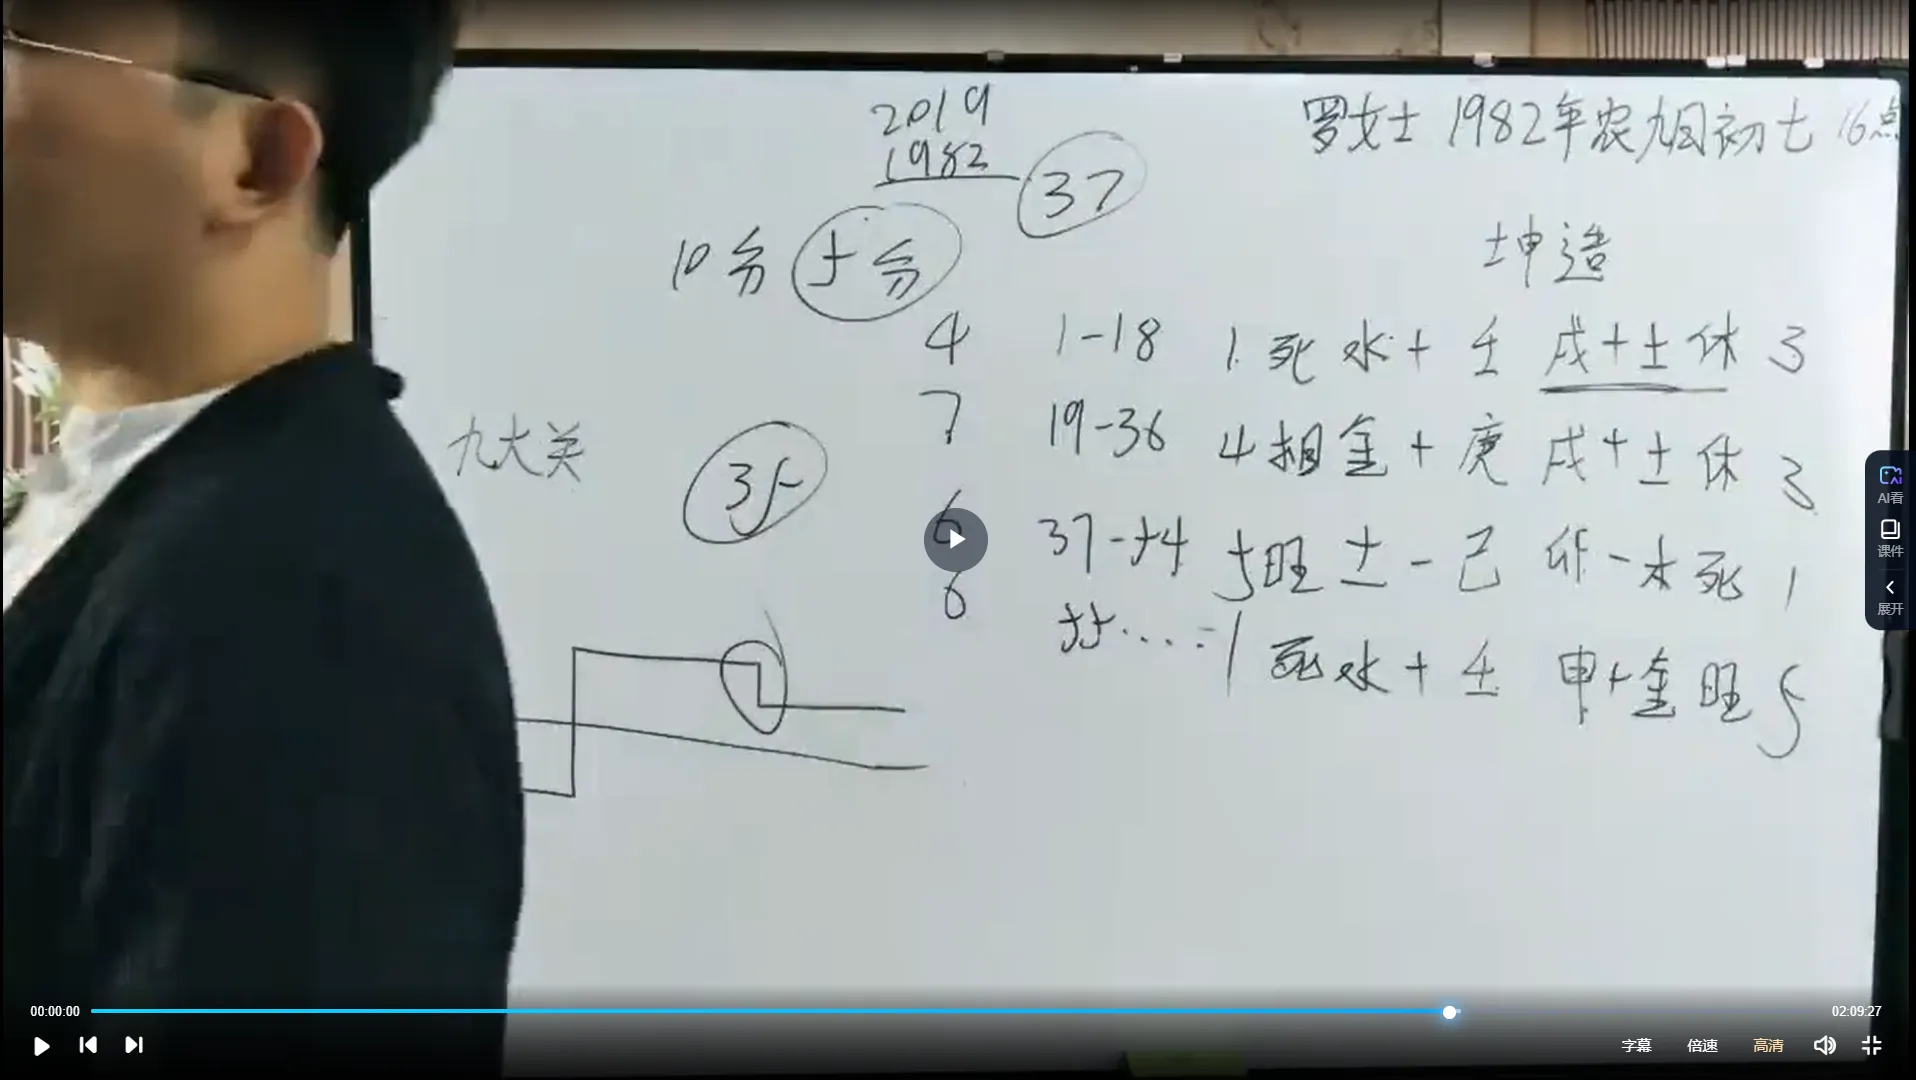 2019
1982
37
罗女士 1982年农九月初七 16点
坤造
10分 5分
4 1-18 1. 死 水 + 壬 戌 + 土 休 3
7 19-36 4 相 金 + 庚 戌 + 土 休 3
6 37-54 5 旺 土 - 己 卯 - 木 死 1
6 55....- 1 死 水 + 壬 申 + 金 旺 5
九大关
35
AI看
课件
展开
00:00:00
02:09:27
字幕 倍速 高清